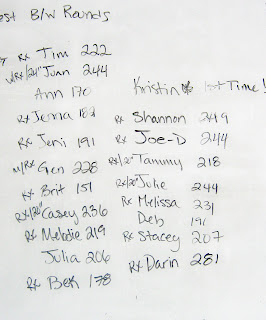 est B/w Rounds
Rx Tim 222
w/Rx/24" Juan 244
Ann 170
Rx Jenna 182
Rx Jeni 191
w/Rx Gen 228
Rx Brit 151
Rx/20" Casey 236
Rx Melodie 219
Julia 206
Rx Bek 178
Kristin 1st Time!
Rx Shannon 249
Rx Joe-D 244
Rx/20" Tammy 218
Rx/20" Julie 244
Rx Melissa 231
Deb 191
Rx Stacey 207
Rx Darin 281